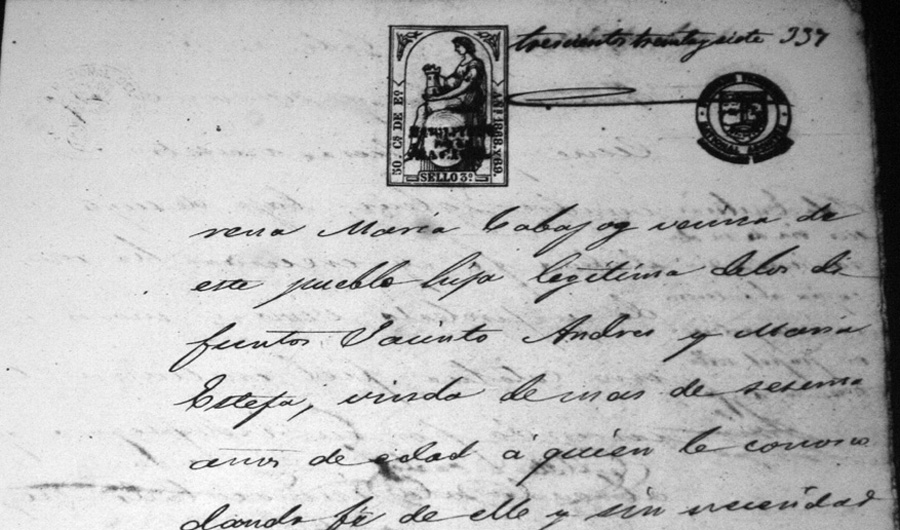 trecientos treintaysiete 337
50. Cs DE Eo.
AÑS 1868. Y 69.
HABILITADO
POR LA
NACION.
SELLO 3º.
rena María Cabajog vecina de
este pueblo hija legítima delos di
funtos Jacinto Andres y María
Estefa, viuda de mas de sesenta
años de edad á quien le conosco
dando fé de ello y sin necesidad